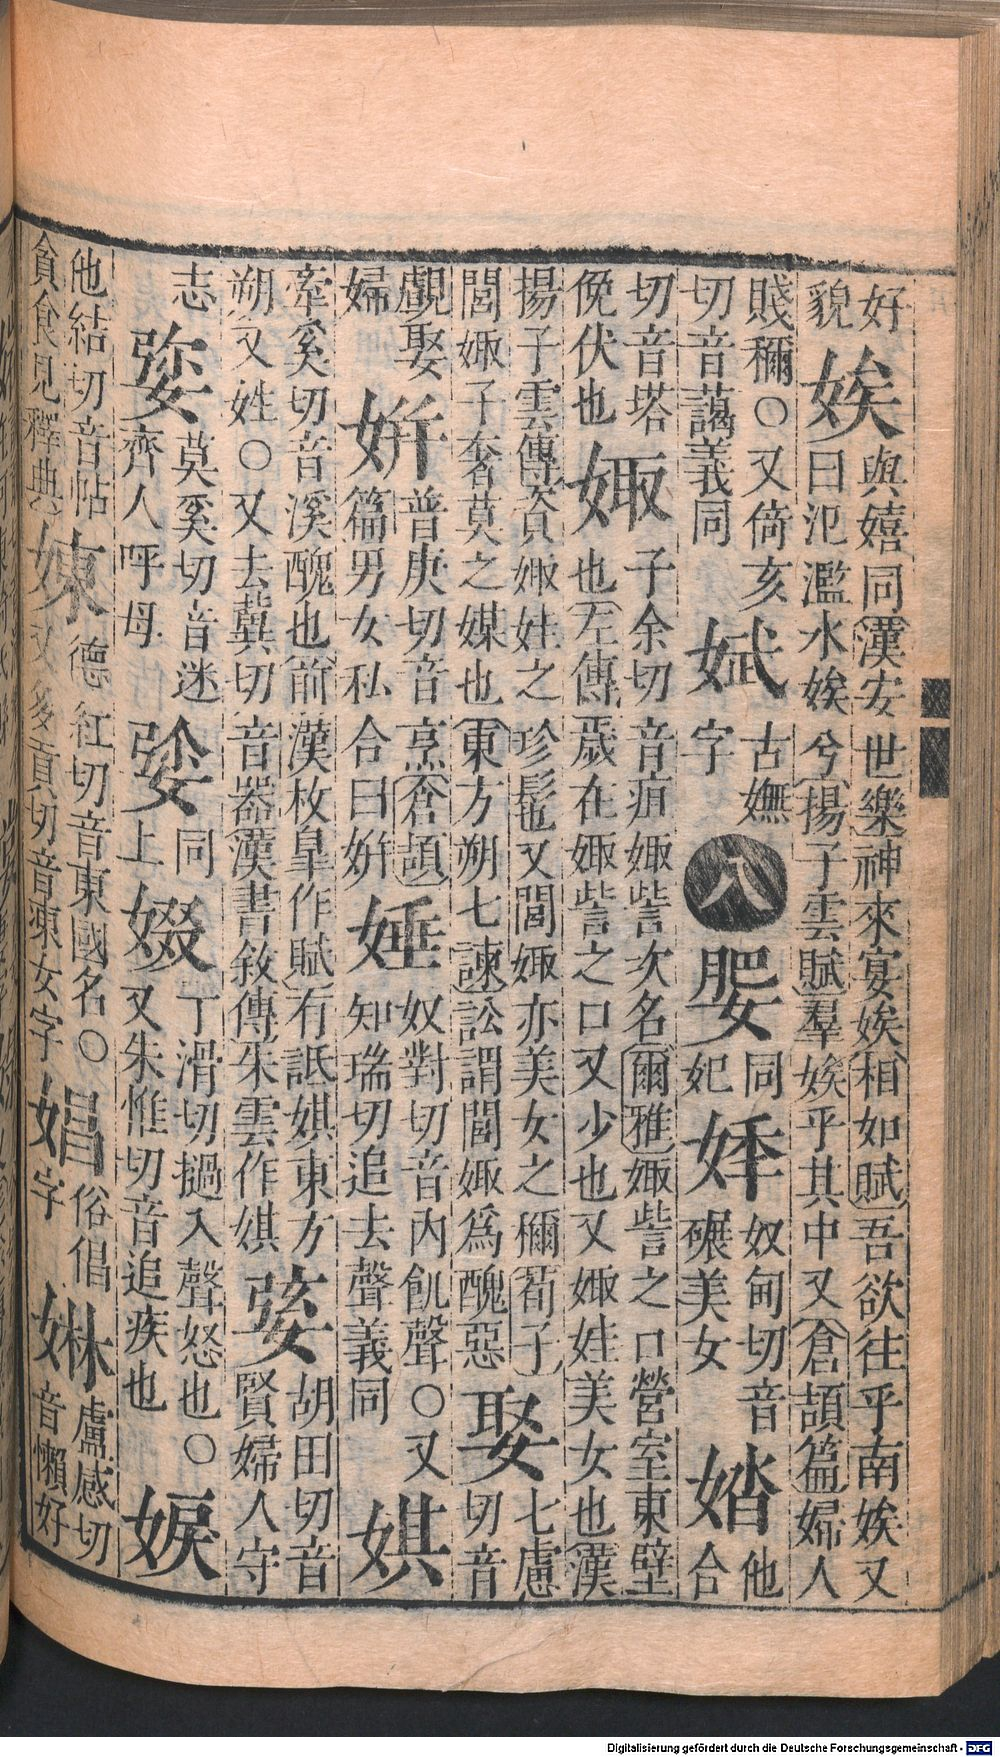 好與嬉同漢安世樂神來宴娭相如賦吾欲往乎南娭又
貌娭曰氾濫水娭兮揚子雲賦羣娭乎其中又倉頡篇婦人
賤稱○又倚亥古嫵同奴甸切音他
切音藹義同娬字八㛍妃㚼碾美女㛥合
切音塔子余切音疽娵訾次名爾雅娵訾之口營室東壁
俛伏也娵也左傳歲在娵訾之口又少也又娵娃美女也漢
揚子雲傳資娵娃之珍髢又閭娵亦美女之稱荀子七慮
閭娵子奢莫之媒也東方朔七諫訟謂閭娵爲醜惡娶切音
覰娶普庚切音烹倉頡奴對切音內飢聲○又
婦姘篇男女私合曰姘娷知瑞切追去聲義同娸
牽奚切音溪醜也前漢枚皐作賦有詆娸東方胡田切音
朔又姓○又去冀切音器漢書敘傳朱雲作娸㛓賢婦人守
志莫奚切音迷同丁滑切撾入聲怒也○
㜷齊人呼母上娺又朱惟切音追疾也
他結切音帖德紅切音東國名○俗倡盧感切
貪食見釋典娻又多貢切音凍女字娼字婪音懶好
Digitalisierung gefördert durch die Deutsche Forschungsgemeinschaft - DFG